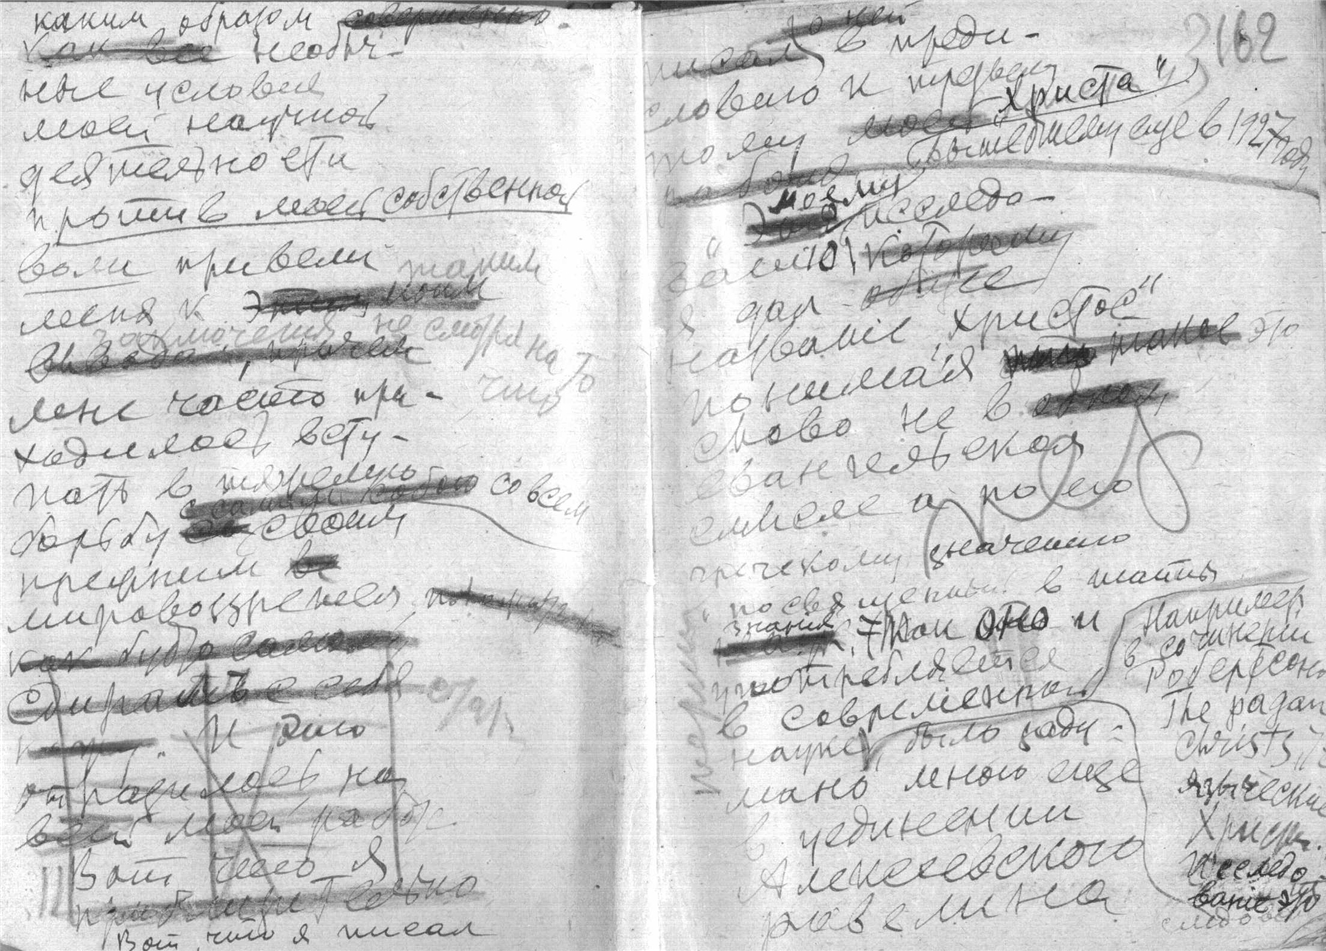 каким образом совершенно
как все необыч-
ные условия
моей научной
деятельности
против моей собственной
воли привели
меня к таким
заключениям не смотря на то
что
мне часто при-
ходилось всту-
пать в тяжелую
борьбу со всем
своим
прежним
мировоззрением
как будто
сдирать с себя
кожу. И это
отразилось на
всей моей работе
Вот чего я
приблизительно
Вот что я писал
162
о ней
писал в преди-
словию к
тому моей "Христа",
вышедшему еще в 1927 году
моему
" исследо-
ванию которому
я дал общее
название "Христос"
понимая такое это
слово не в
евангельском
смысле а по его
греческому значению
посвященный в тайны
знания, как оно и
употребляется
в современной
науке, было заду-
мано мною еще
в уединении
Алексеевского
равелина
Например
в сочинении
Робертсона
The pagan
Christs,
языческие
Христы.
Исследо
вание это